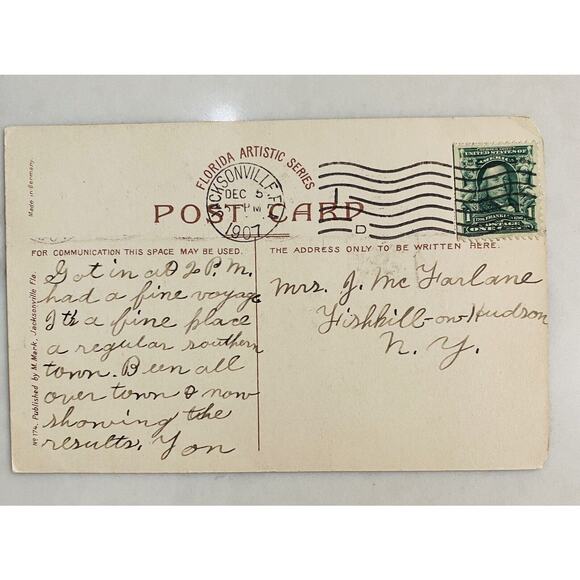 FLORIDA ARTISTIC SERIES
JACKSONVILLE, FLA.
DEC 5
PM
1907
D
UNITED STATES OF AMERICA
1 FRANKLIN 1
POSTAGE
ONE
POST CARD
Made in Germany.
No 174. Published by M. Mark, Jacksonville Fla.
FOR COMMUNICATION THIS SPACE MAY BE USED.
THE ADDRESS ONLY TO BE WRITTEN HERE.
Got in at 2 P.M.
had a fine voyage
It's a fine place
a regular southern
town. Been all
over town & now
showing the
results. Yon
Mrs. J. Mc Farlane
Fishkill-on-Hudson
N. Y.